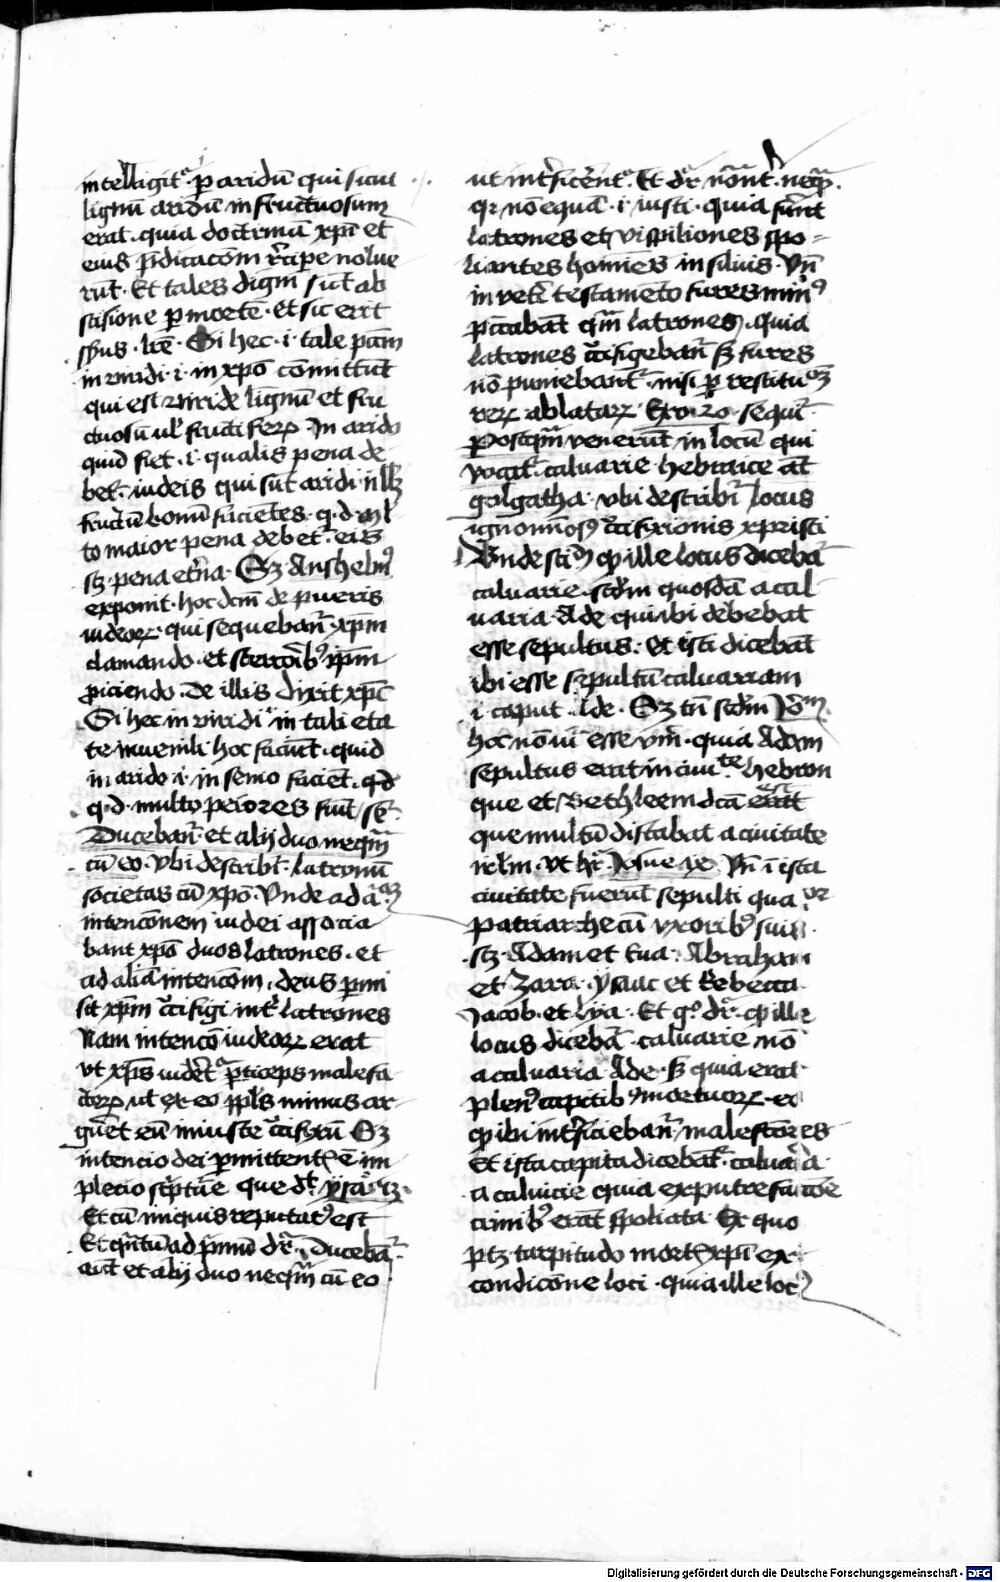 intelligit᷒ · p aridu̅ qui sicut
lignu̅ aridu̅ infructuosum
erat · quia doctrina̅ xp̅i et
eius p̅dicac̅om rec̅ipe nolue
ru̅t · Et tales digni su̅t ab
scisione p morte̅ · et sic erit
Si hec · i · tale
in viridi · i · in xp̅o co̅mittu̅t
qui est viride lignu̅ et fru
ctuosu̅ ul̅ fructifer · In arido
quid fiet · i · qualis pena de
bet᷒ · iudeis qui su̅t aridi · null
fructu̅ bonu̅ facientes · q · d · ml̅
to maior pena debet᷒ · eis
sz · pena et̅na · Sz Anshelmꝰ
exponit · hoc dc̅m de pueris
iudeoꝝ · qui sequeban̅t xp̅m
clamando · et stercoribꝰ xp̅m
ꝓiciendo · De illis dixit xp̅c
Si hec in viridi · i · in tali eta
te iuuenili hoc faciu̅t · quid
in arido · i · in senio facie̅t · qd̅
q · d · multo peiores fiu̅t
Duceban̅t · et alij duo neqm̅
cu̅ eo · Vbi describit᷒ · latronu̅
societas cu̅ xp̅o · Vnde ad
intenc̅onem iudei associa
bant xp̅o duos latrones · et
ad alia̅ intenc̅om · deus p̅mi
sit xp̅m c̅cifigi int᷒ latrones
Nam intenc̅o iudeoꝝ erat
vt xp̅s vider̅et᷒ p̅ticeps malefa
ctoꝝ ut ex eo ppl̅s minus ar
gu̅et eu̅ iniuste c̅cifixu̅ Sz
intencio dei p̅mittentis e̅ im
plecio sc̅pture̅ que dt̅ ysa
Et cu̅ iniquis reputatꝰ est
Et qn̅tu̅ ad p̅mu̅ dr̅ · Duceba̅t᷒
aut̅ et alij duo neqm̅ cu̅ eo
ut int᷒ficere̅nt᷒ · Et dr̅ no̅nt᷒ · neqm̅
qr̅ no̅ equa̅ · i · iusti · quia fu̅nt
latrones et vispiliones spo
liantes homi̅es in siluis · Vn̅
in vet̅i testame̅to fures minꝰ
peccaba̅t qm̅ latrones · quia
latrones c̅cifigeban̅t sz fures
no̅ puniebant᷒ · nisi p restituc̅om
reꝝ ablataꝝ · Exo · 20 · sequit᷒ ·
Postqm̅ veneru̅t in locu̅ qui
vocat᷒ · caluarie · hebraice at̅
golgatha · vbi describit᷒ locus
ignominosꝰ c̅cifixionis xpristi
Vnde sciendu̅ ꝙ ille locus diceba̅t᷒
caluarie · scd̅m quosda̅ a cal
uaria Ade · qui ibi debebat
esse sepultus · et isti diceba̅t
ibi esse sepultu̅ caluariam
i · caput · Ade · Sz tn̅ scd̅m
hoc no̅ vi̅ esse veru̅ · quia Adam
sepultus erat in ciui̅te · hebron
que et Bethleem dc̅a est
que multu̅ distabat a ciuitate
irlm̅ · Vt hr̅ Josue ix Vn̅ i̅ ista
ciuitate fueru̅t sepulti quatuor
patriarche cu̅ vxoribꝰ suis ·
sz · Adam et Eua · Abraham
et Zara · ysaac et Rebecca ·
Jacob · et lya · Et qꝰ dr̅ · ꝙ ille
locus diceba̅t᷒ · caluarie no̅
a caluaria Ade · sz quia erat ·
plenꝰ capitibꝰ mortuoꝝ · ex
ꝙ ibi int᷒ficieban̅t · malef̅ctores
Et ista capita dicebant᷒ · caluaria
a caluicie quia ex putrefac̅oe
crinibꝰ era̅t spoliata · Ex quo
ptz · turpitudo mortis xp̅i ex
condic̅one loci · quia ille locꝰ
Digitalisierung gefördert durch die Deutsche Forschungsgemeinschaft - DFG